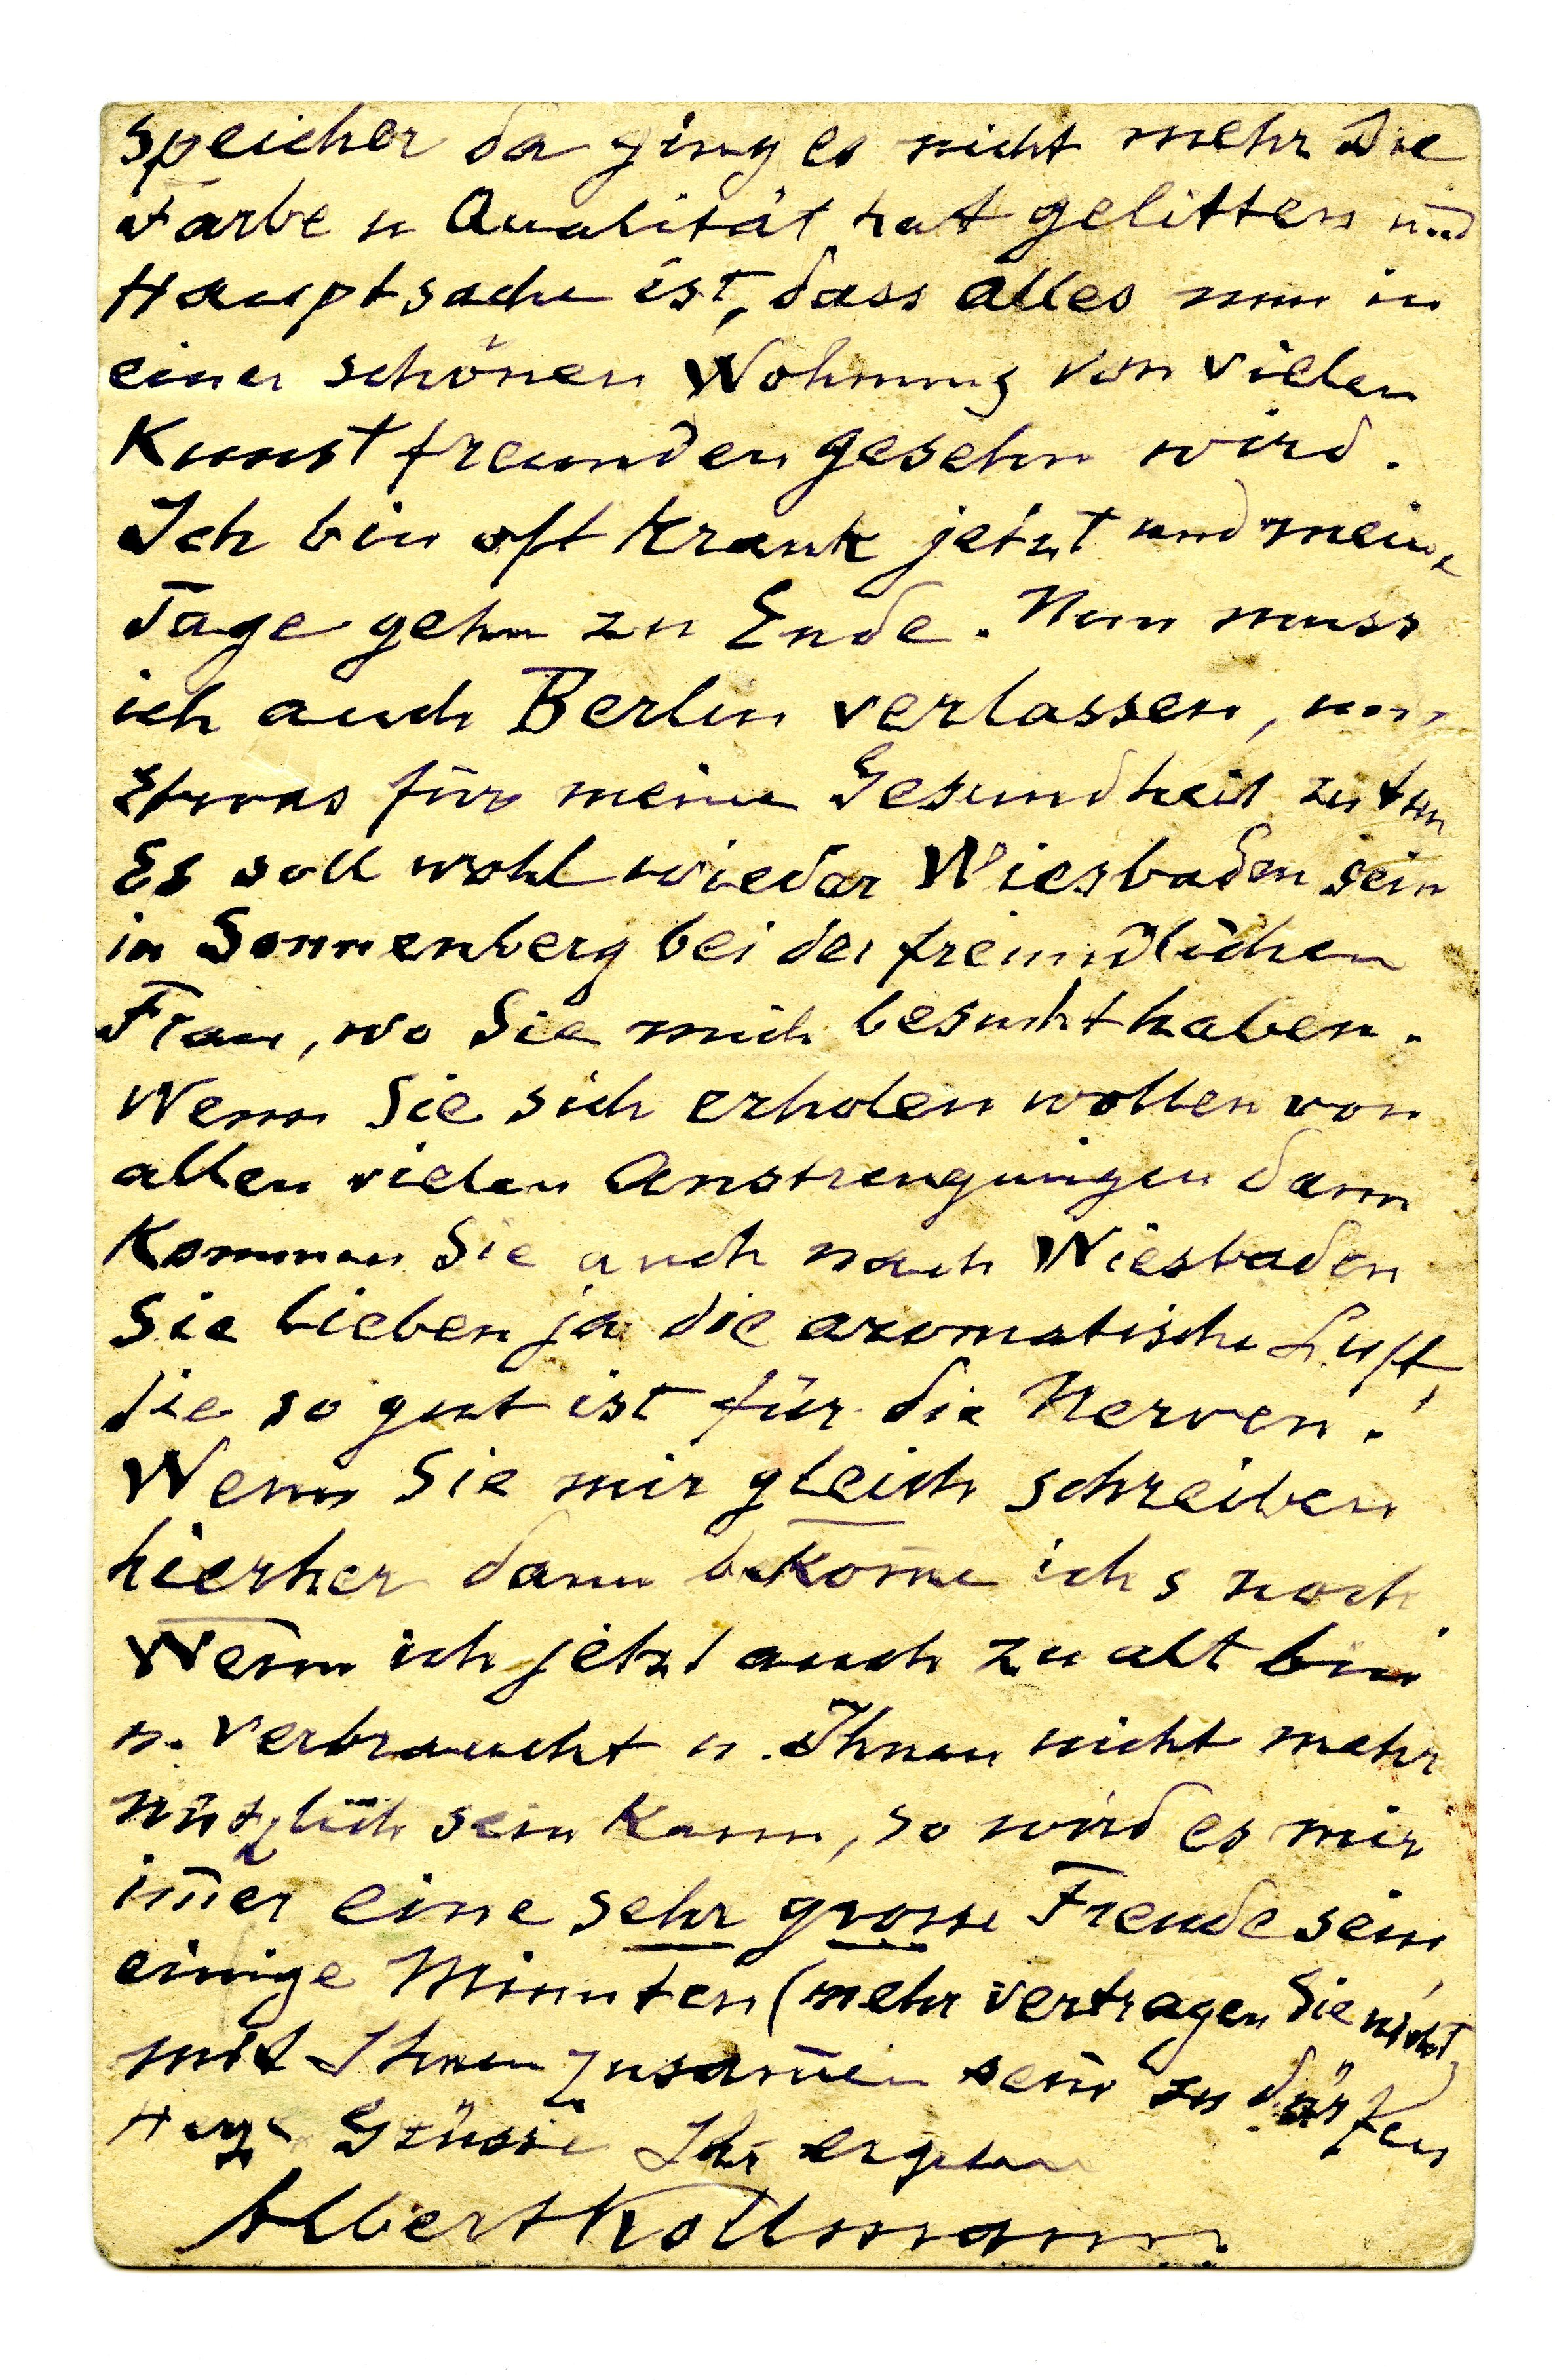 Speicher da ging es nicht mehr Die
Farbe u Qualität hat gelitten und
Hauptsache ist, dass alles nun in
einer schönen Wohnung von vielen
Kunstfreunden gesehn wird.
Ich bin oft krank jetzt und meine
Tage gehn zu Ende. Nun muss
ich auch Berlin verlassen, um
Etwas für meine Gesundheit zu tun
Es soll wohl wieder Wiesbaden sein
in Sonnenberg bei der freundlichen
Frau, wo Sie mich besucht haben.
Wenn Sie sich erholen wollen von
allen vielen Anstrengungen dann
Kommen Sie auch nach Wiesbaden
Sie lieben ja die aromatische Luft,
die so gut ist für die Nerven!
Wenn Sie mir gleich schreiben
hierher dann bekom̅e ich s noch
Wenn ich jetzt auch zu alt bin
u. verbraucht u. Ihnen nicht mehr
nützlich sein kann, so wird es mir
im̅er eine sehr grosse Freude sein,
einige Minuten (mehr vertragen Sie nicht)
mit Ihnen zusam̅en sein zu dürfen
Herzl Grüsse Ihr ergeben
Albert Kollmann.